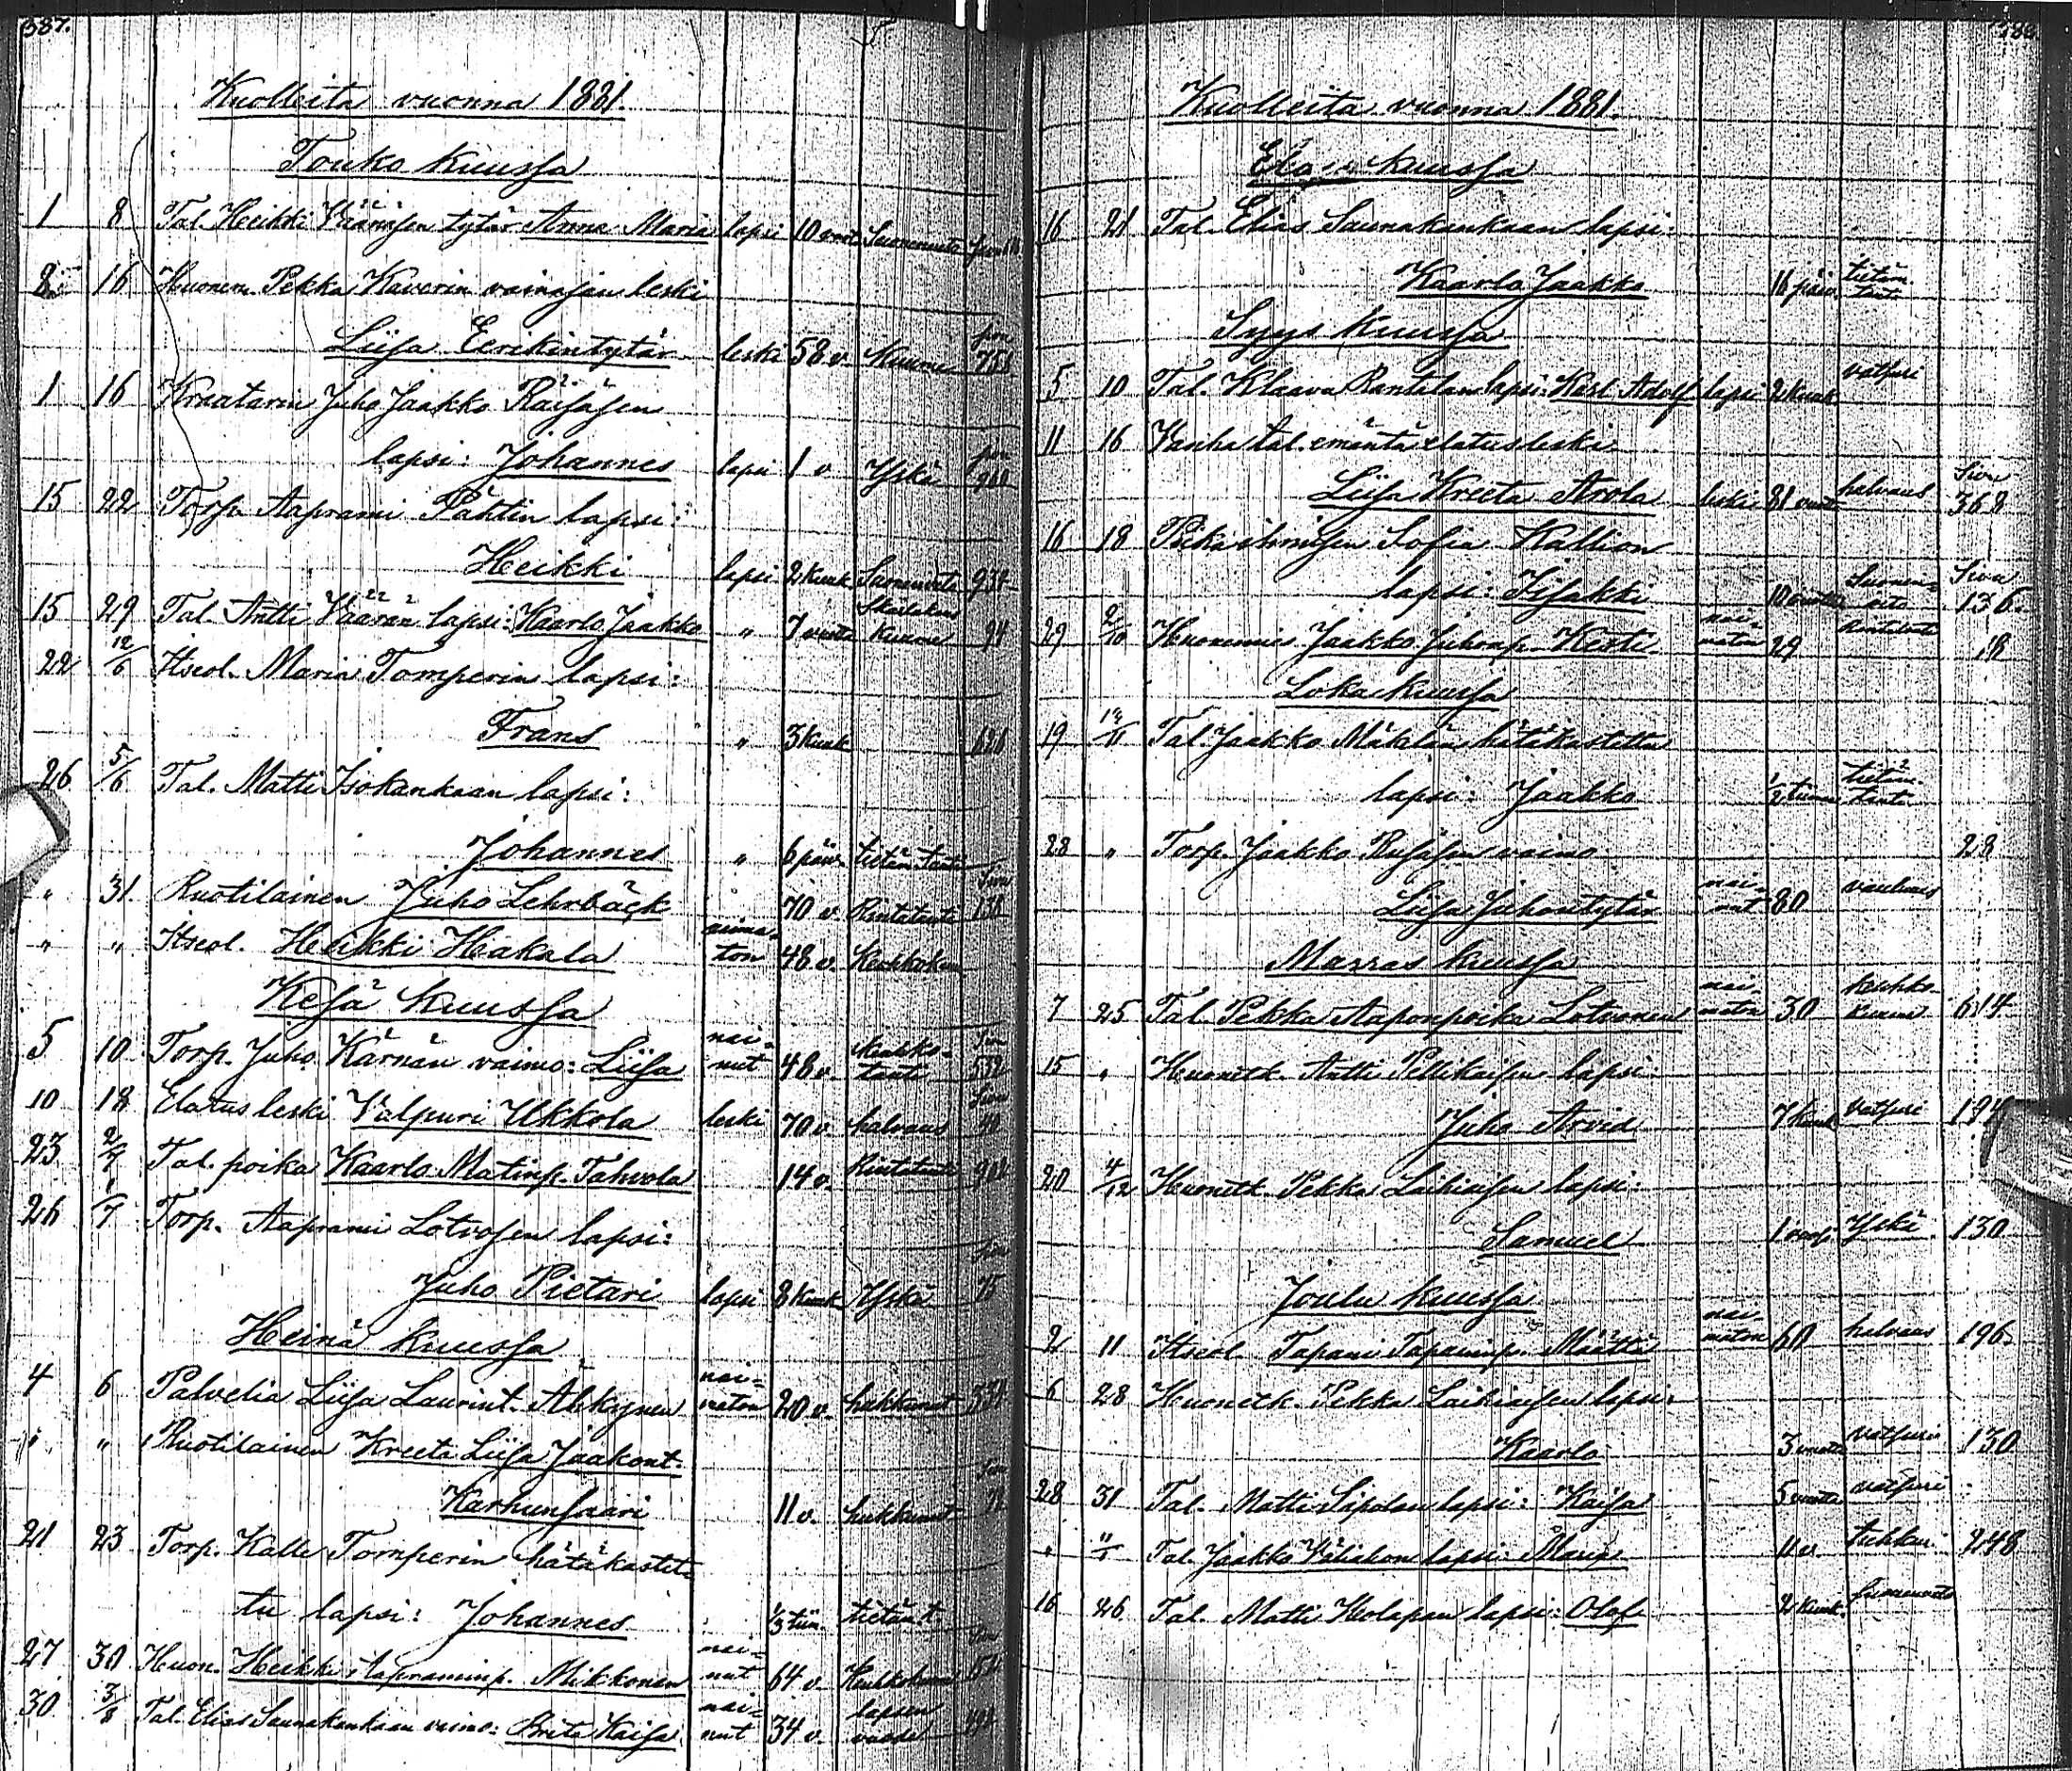 387.
Kuolleita vuonna 1881.
Touko kuussa
1 8 Tal. Heikki Väänäsen tytär Anna Maria lapsi 10 vuot Suonenveto
8 16 Huonem. Pekka Kaverin vainajan leski
Liisa Eerikintytär leski 58 v. Kuume sivu 751
1 16 Kraatarin Juho Jaakko Räisäsen
lapsi: Johannes lapsi 1 v Yskä sivu 960
15 22 Torp. Aaprami Pähtin lapsi:
Heikki lapsi 2 kuuk Suonenveto 934
15 29 Tal. Antti Väärän lapsi: Kaarlo Jaakko " 7 vuotta kuume 94
22 12/6 Itseol. Maria Tomperin lapsi:
Frans " 3 kuuk 626
26 5/6 Tal. Matti Isokankaan lapsi:
Johannes " 6 päiv. tietän tauti
" 31 Ruotilainen Juho Lehrbäck 70 v. Rintatauti Sivu 138
" " Itseol. Heikki Hakala naima=
ton 48 v. Keuhkokuu
Kesä kuussa
5 10 Torp. Juho Kärnän vaimo: Liisa nai=
nut 48 v. keuhko-
tauti Sivu 532
10 18 Elatus leski Valpuri Ukkola leski 70 v. halvaus Sivu 40
23 2/7 Tal. poika Kaarlo Matinp. Tahvola 14 v. Rintatauti 902
26 /7 Torp. Aaprami Lotvosen lapsi:
Juho Pietari lapsi 8 kuuk Yskä Sivu 75
Heinä kuussa
4 6 Palvelia Liisa Laurint. Ahkynen nai=
maton 20 v. hukkunut 334
" " Ruotilainen Kreeta Liisa Jaakont.
Karhunsaari 11 v. hukkunut
21 23 Torp. Kalle Tomperin hätäkastet=
tu lapsi: Johannes 1/3 tiim. tietän t
27 30 Huon. Heikki Aapraminp. Mikkonen nai=
nut 64 v. Keuhkokuu
30 3/8 Tal. Elias Saunakankaan vaimo: Brita Kaisa nai=
nut 34 v. lapsen
vuode
Kuolleita vuonna 1881.
Elo kuussa
16 21 Tal. Elias Saunakankaan lapsi:
Kaarlo Jaakko 16 päiv. tietän
taut.
Syys kuussa
5 10 Tal. Klaava Rantalan lapsi: Karl Adolf lapsi 2 kuuk. vatsuri
11 16 Vanha tal. emäntä elatusleski
Liisa Kreeta Arola leski 81 vuot halvaus Sivu 368
16 18 Piika ihmisen Sofia Kallion
lapsi: Iisakki 10 vuotta Suonen=
veto Sivu 136.
29 2/10 Huonemies Jaakko Juhonp. Kesti nai=
maton 29 Rintatauti 18
Loka kuussa
19 12/11 Tal. Jaakko Mäkelän hätäkastettu
lapsi: Jaakko 1/2 tiima tietän-
tauti
28 " Torp. Jaakko Rusasen vaimo 28
Liisa Juhontytär nai=
nut 80 vanhuus
Marras kuussa
7 25 Tal. Pekka Aaponpoika Lotvonen nai-
maton 30 keuhko-
kuume 614
15 " Huonetk. Antti Pellikaisen lapsi
Juho Arvid 7 kuuk vatsuri 194
20 4/12 Huonetk. Pekka Laihiaisen lapsi:
Samuel 1 vuosi Yskä 130
Joulu kuussa
2 11 Itseol. Tapani Tapaninp. Määttä nai=
maton 60 halvaus 196
6 28 Huonetk. Pekka Laihiaisen lapsi:
Kaarlo 3 vuotta vatsuri 130
28 31 Tal. Matti Sipolan lapsi: Kaisa 5 vuotta vatsuri
" Tal. Jaakko Väliahon lapsi: Maria 11 v. tuhkuri 248
16 26 Tal. Matti Holapan lapsi: Olof 2 kuuk. Suonenveto